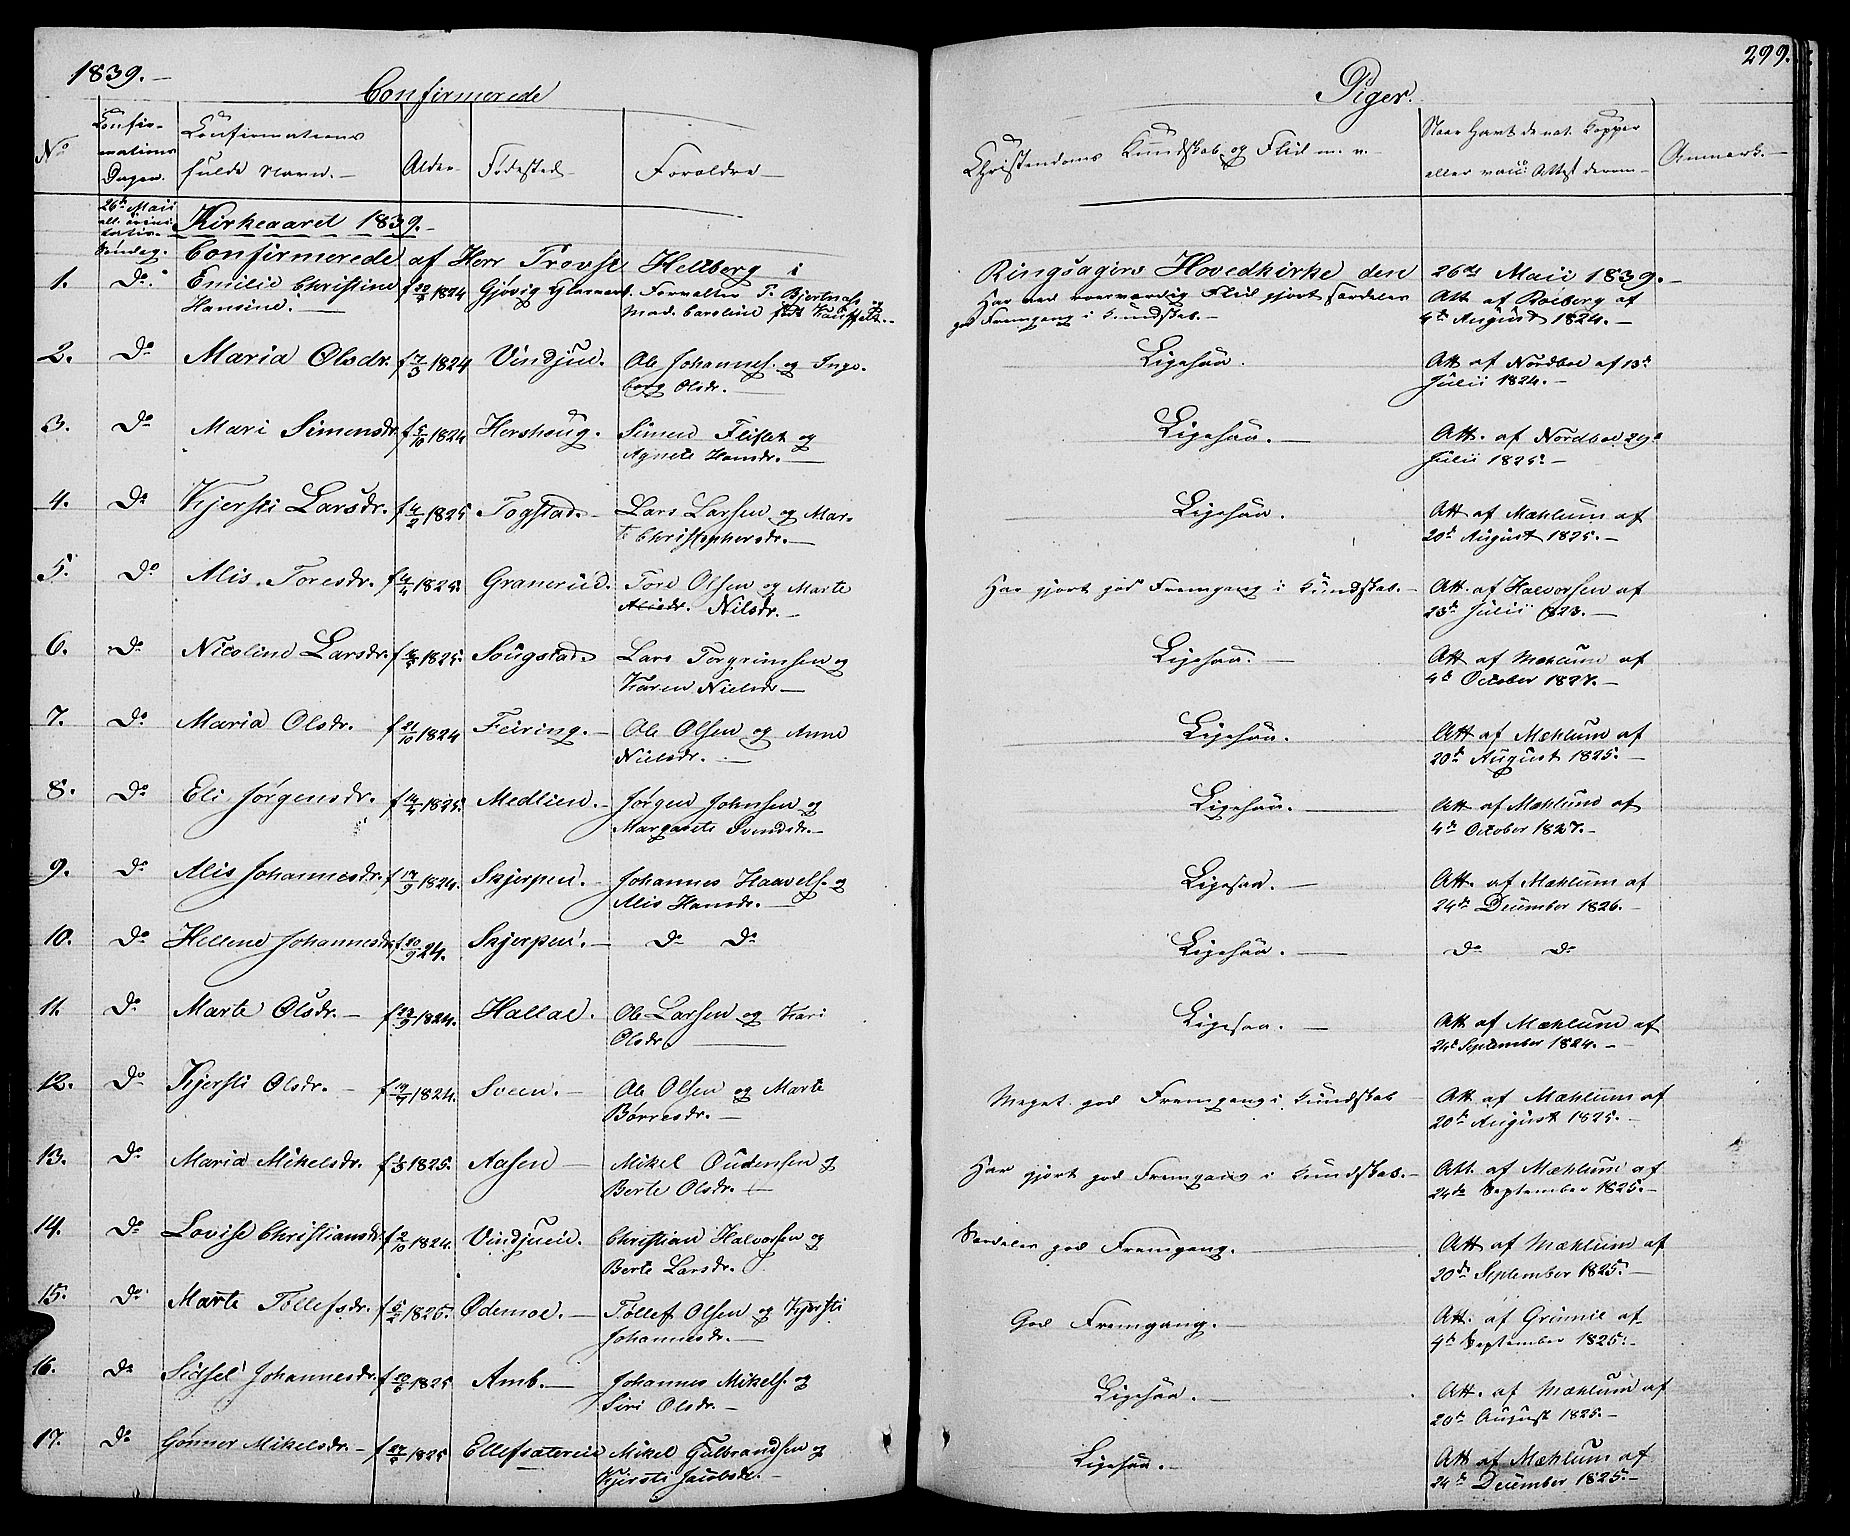 1839.
Confirmerede
Piger.
299.
No
Confir-
mations
Dagen.
Confirmations
fulde Navn.
Alder
Fødested
Forældre
Christendoms Kundskab og Flid m. v.
Naar havt de nat. Kopper
eller vacc: Attest derom
Anmærk.
26de Maii
Søndag.
Kirkeaaret 1839.
Confirmerede af Herr Provst Hellberg i Ringsagers Hovedkirke den 26de Maii 1839.
1. Do Emilie Christine f 1824 Gjøvig Forvalter P. Bjertnæs og Har ved roesværdig Flid gjort særdeles Att. af Boeberg af
Hansine. Mad. Caroline født god Fremgang i Kundskab. 4de August 1824.
2. Do Maria Olsdr. f 7/3 1824 Vindjue. Ole Johannes. og Inge- Ligesaa. Att. af Nordboe af 13de
borg Olsdr. Julii 1824.
3. Do Mari Simensdr. f 5/10 1824 Hershoug. Simen Fliset og Ligesaa. Att. af Nordboe 29de
Agnete Hansdr. Julii 1825.
4. Do Kjersti Larsdr. f 4/2 1825 Togstad. Lars Larsen og Mar- Ligesaa. Att. af Mæhlum af
te Christophersdr. 20de August 1825.
5. Do Alis Toresdr. f 4/4 1825. Granerud. Tore Olsen og Marte Har gjort god Fremgang i Kundskab. Att. af Halvorsen af
Nilsdr. 23de Julii 1823.
6. Do Nicoline Larsdr. f 1825. Sougstad Lars Torgrimsen og Ligesaa. Att. af Mæhlum af
Karen Nielsdr 4de October 1827.
7. Do Maria Olsdr. f 21/10 1824 Feiring. Ole Olsen og Anne Ligesaa. Att. af Mæhlum af
Nielsdr. 20de August 1825.
8. Do Eli Jørgensdr. f 14/4 1825. Medlien. Jørgen Johnsen og Ligesaa. Att. af Mæhlum af
Margarete Svendsdr. 4de October 1827.
9. Do Alis Johannesdr. f 17/9 1824. Skjerpen. Johannes Haavels. og Ligesaa. Att. af Mæhlum af
Alis Hansdr. 24de December 1826.
10. Do Hellene Johannesdr f 20/9 24. Skjerpen. Do Do Ligesaa. Do Do
11. Do Marte Olsdr. f 1824. Hallal. Ole Larsen og Kari Ligesaa. Att. af Mæhlum af
Olsdr. 24de September 1824.
12. Do Kjersti Olsdr. f 1824. Sveen. Ole Olsen og Marte Meget god Fremgang i Kundskab Att. af Mæhlum af
Børresdr. 20de August 1825.
13. Do Maria Mikelsdr. f 1825. Aasen Mikel Oudensen og Har gjort god Fremgang i Kundskab. Att. af Mæhlum af
Berte Olsdr. 24de September 1825.
14. Do Lovise Christiansdr. f 2/10 1824. Vindjuen. Christian Halvorsen og Særdeles god Fremgang. Att. af Mæhlum af
Berte Larsdr. 20de September 1825.
15. Do Marte Tollefsdr. f 1825. Ødemoe. Tollef Olsen og Kjersti God Fremgang. Att. af Grimne af
Johannesdr. 4de September 1825.
16. Do Sidsel Johannesdr. f 1825 Amb. Johannes Mikels. og Ligesaa. Att. af Mæhlum af
Siri Olsdr. 20de August 1825.
17. Do Gonner Mikelsdr. f 1825 Ellefsæterie Mikel Gulbrandsen og Ligesaa. Att. af Mæhlum af
Kjersti Jacobsdr. 24de December 1825.